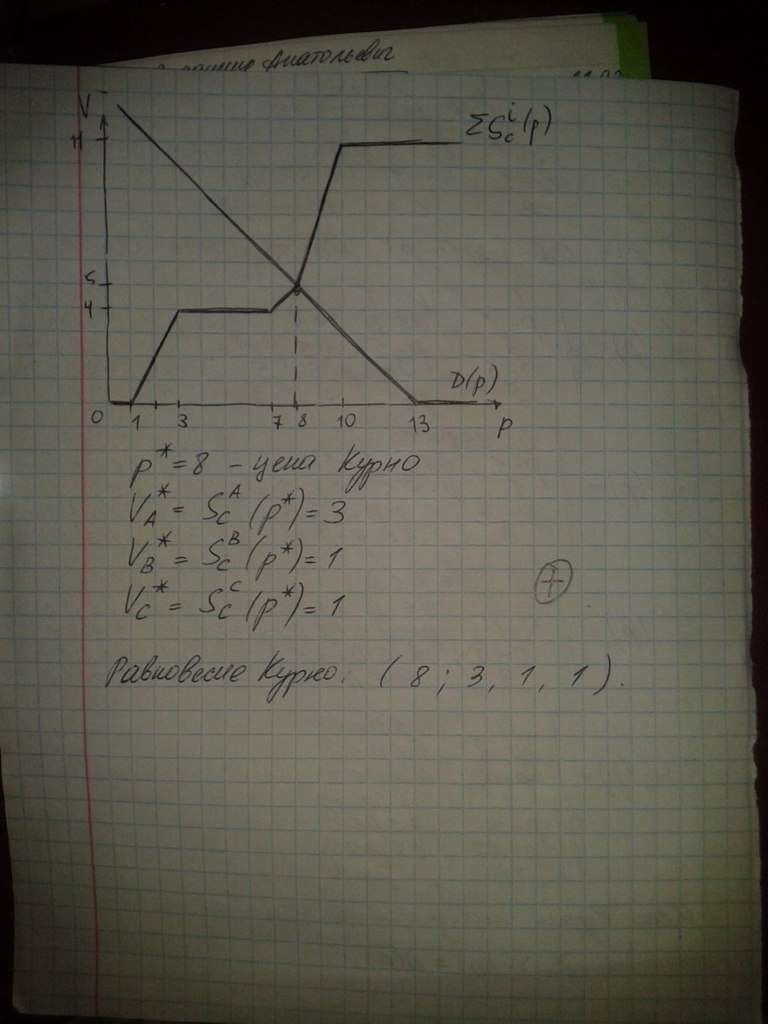 Анатольевич
V
ΣS_c^i(p)
11
5
4
D(p)
0 1 3 7 8 10 13 p
p* = 8 - цена Курно
V_A* = S_c^A (p*) = 3
V_B* = S_c^B (p*) = 1
V_C* = S_c^C (p*) = 1
+
Равновесие Курно: (8; 3, 1, 1).